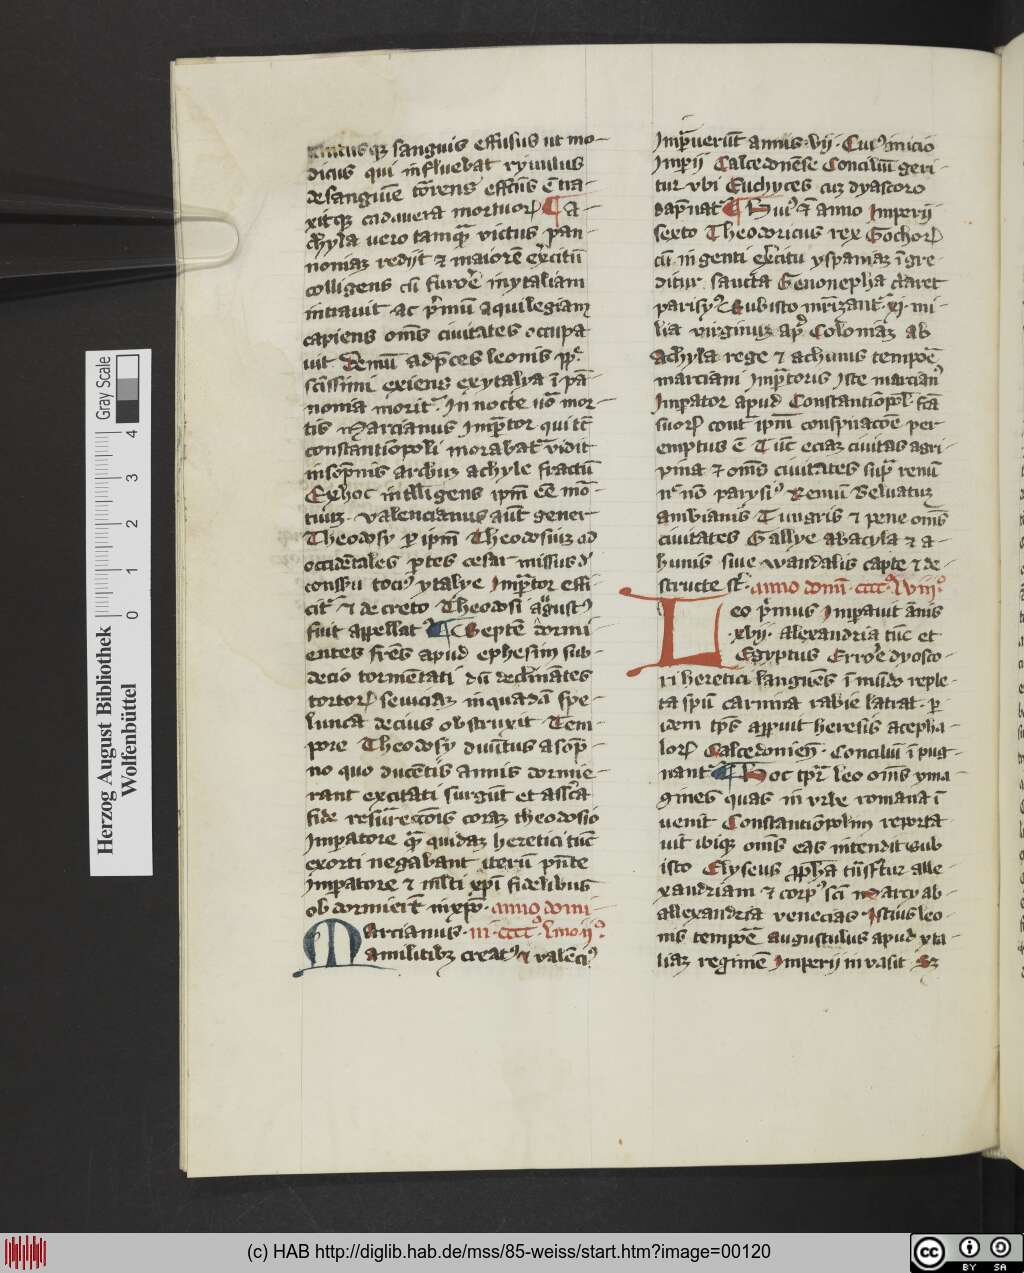 sanguis effusus ut mo-
dicus qui influebat ryuulus
de sanguine torrens effectus e tra-
xitque cadauera mortuorum ¶ A-
thyla vero tamquam victus pan-
noniaz redijt et maiorem exercitum
colligens cum furore in ytaliam
intrauit ac primum aquilegiam
capiens omnes ciuitates occupa
uit Demum ad preces leonis pape
sanctissimi exiens ex ytalia in pan-
nonia moritur. In nocte vero mor-
tis Marcianus Imperator qui tunc
constantinopoli morabatur vidit
in sompnis archuz achyle fractum
Ex hoc intelligens ipsum esse mor-
tuuz. valencianus autem gener
Theodosy per ipsum Theodosiuz ad
occidentales partes cesar missus de
consensu tocius ytalye Imperator effi
citur et decreto Theodosi augustus
fuit appellatus ¶ Septem dormi-
entes fratres apud ephesim sub-
decio tormentati dum declinantes
tortorum seuiciaz in quadam spe-
lunca decius obstruxit Tem-
pore Theodosy diuinitus a sopo-
no quo ducentis annis dormie-
rant excitati surgunt et asserta
fide resurrectionis coraz theodosio
Imperatore quam quidaz heretici tunc
exorti negabant iterum presente
Imperatore et multis christi fidelibus
ob dormierunt in christo. anno domi-
Marcianus. ni. cccc° lmo. ij°
a militibuz creatus et valenci9
Imperauerunt annis. vij. Cuius inicio
Imperij Calcedonense Concilium geri-
tur vbi Euthyces cuz dyascoro
dampnatur ¶ Huius etiam anno Imperij
sexto Theodoricus rex Gothorum
cum ingenti exercitu yspaniaz ingre-
ditur sancta Genonepha claret
parisyus Sub isto martirizantur xj. mi-
lia virginuz apud Coloniaz ab
achyla rege et a chunis tempore
marciani Imperatoris Iste marcianus
Imperator apud Constantinopol. fra
suorum contra ipsum conspiracione per
emptus est Tunc eciaz ciuitas agri-
pina et omnes ciuitates supra renum
non parysius Remum Beluatuz
ambianis Tungris et pene omnes
ciuitates Gallye ab acyla et a-
hunis siue wandalis capte et de-
structe sunt. anno domini. cccc° lviij°
Leo primus Imperauit annis
xvij. alexandria tunc et
Egyptus Errore dyosco-
ri heretici languens inmundo reple-
ta spiritum carmina rabie latrat. per
idem tempus apparuit heresis acepha-
lorum Calcedonien. Concilium inpug-
nantium ¶ Hoc tempore leo omnes yma-
gines quas in vrbe romana in
uenit Constantinopolim reporta
uit ibique omnes eas incendit Sub
isto Elyseus propheta transfertur alle
xandriam et corpus sancti Marci ab-
allexandria venecias. Istius leo-
nis tempore augustulus apud yta-
liaz regimen Imperij inuasit Sz
Herzog August Bibliothek
Wolfenbüttel
0 1 2 3 4 Gray Scale
(c) HAB http://diglib.hab.de/mss/85-weiss/start.htm?image=00120
cc BY SA